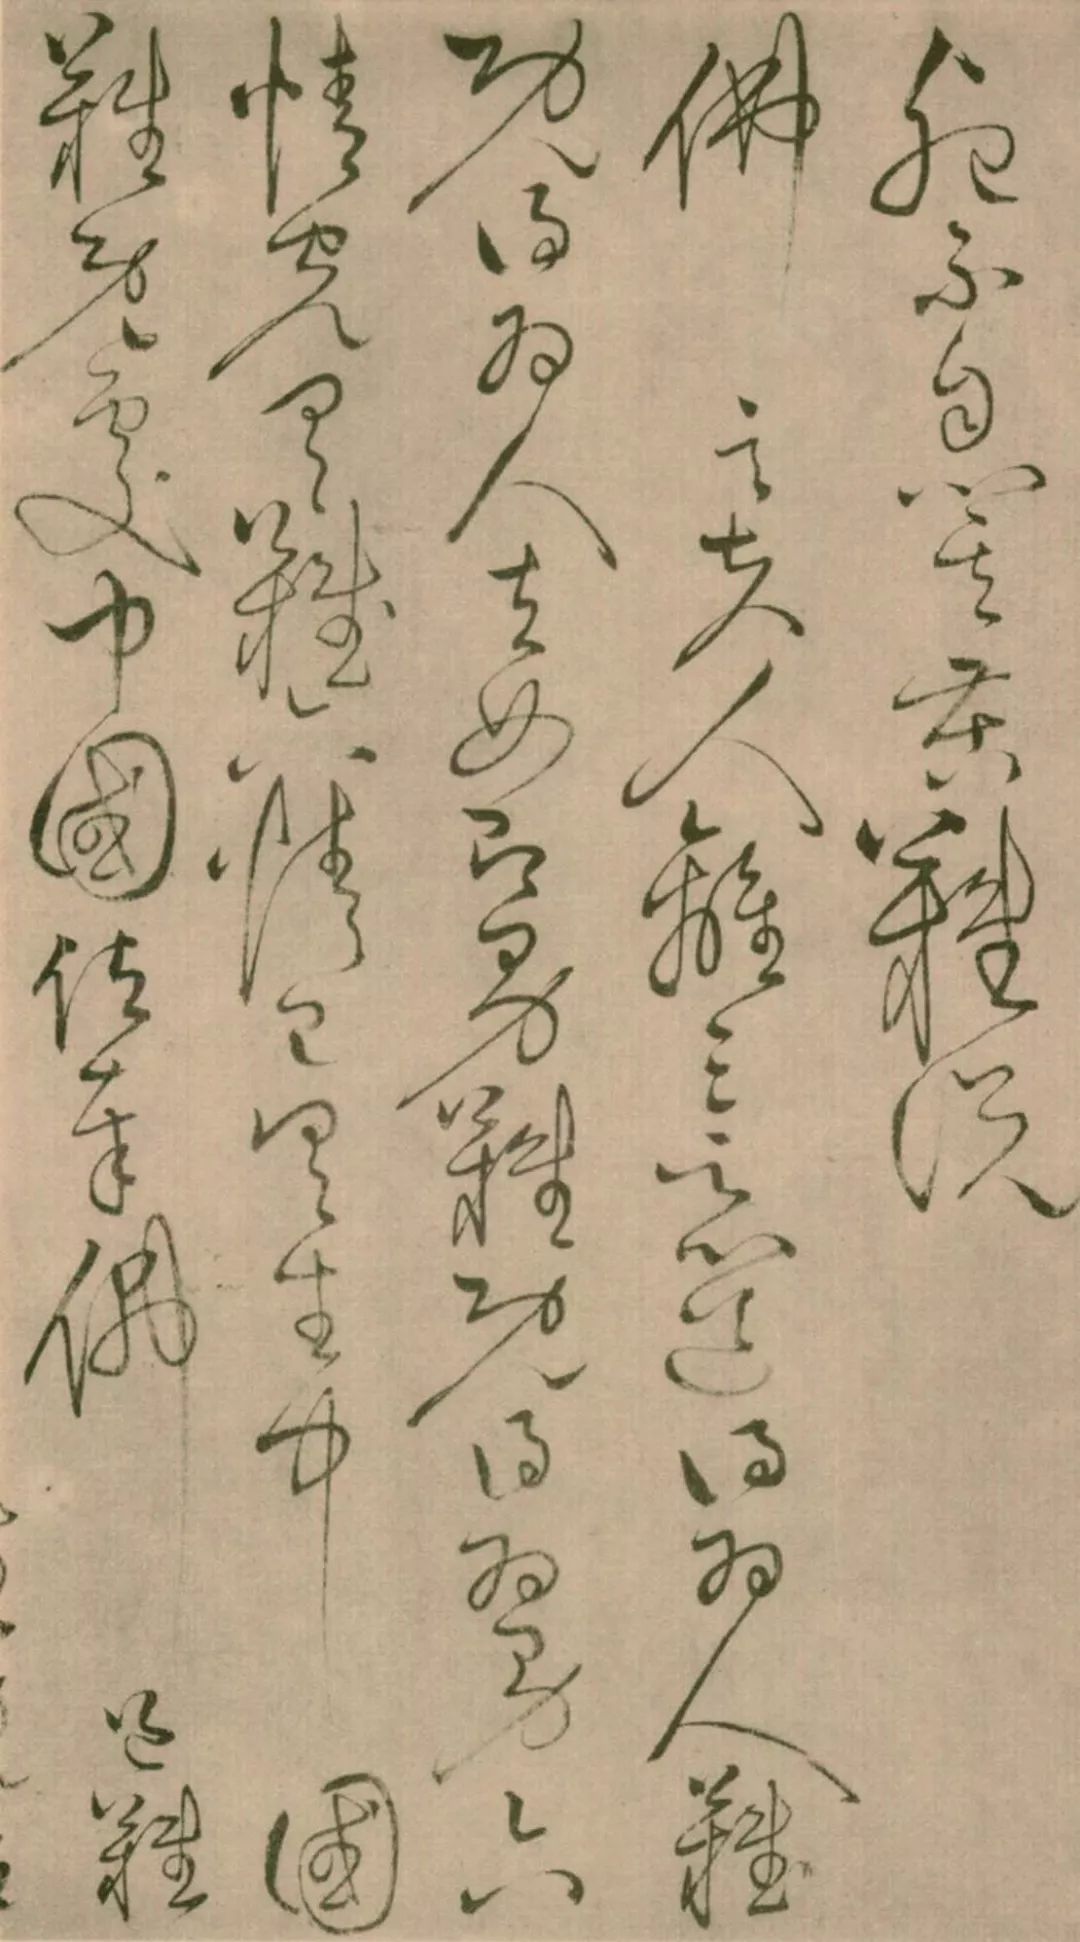 不自其難
佛言夫人離三惡道得為人難
既得為人去女即男難既得為男六
情完具難六情已具生中國
難既處中國值奉佛道難